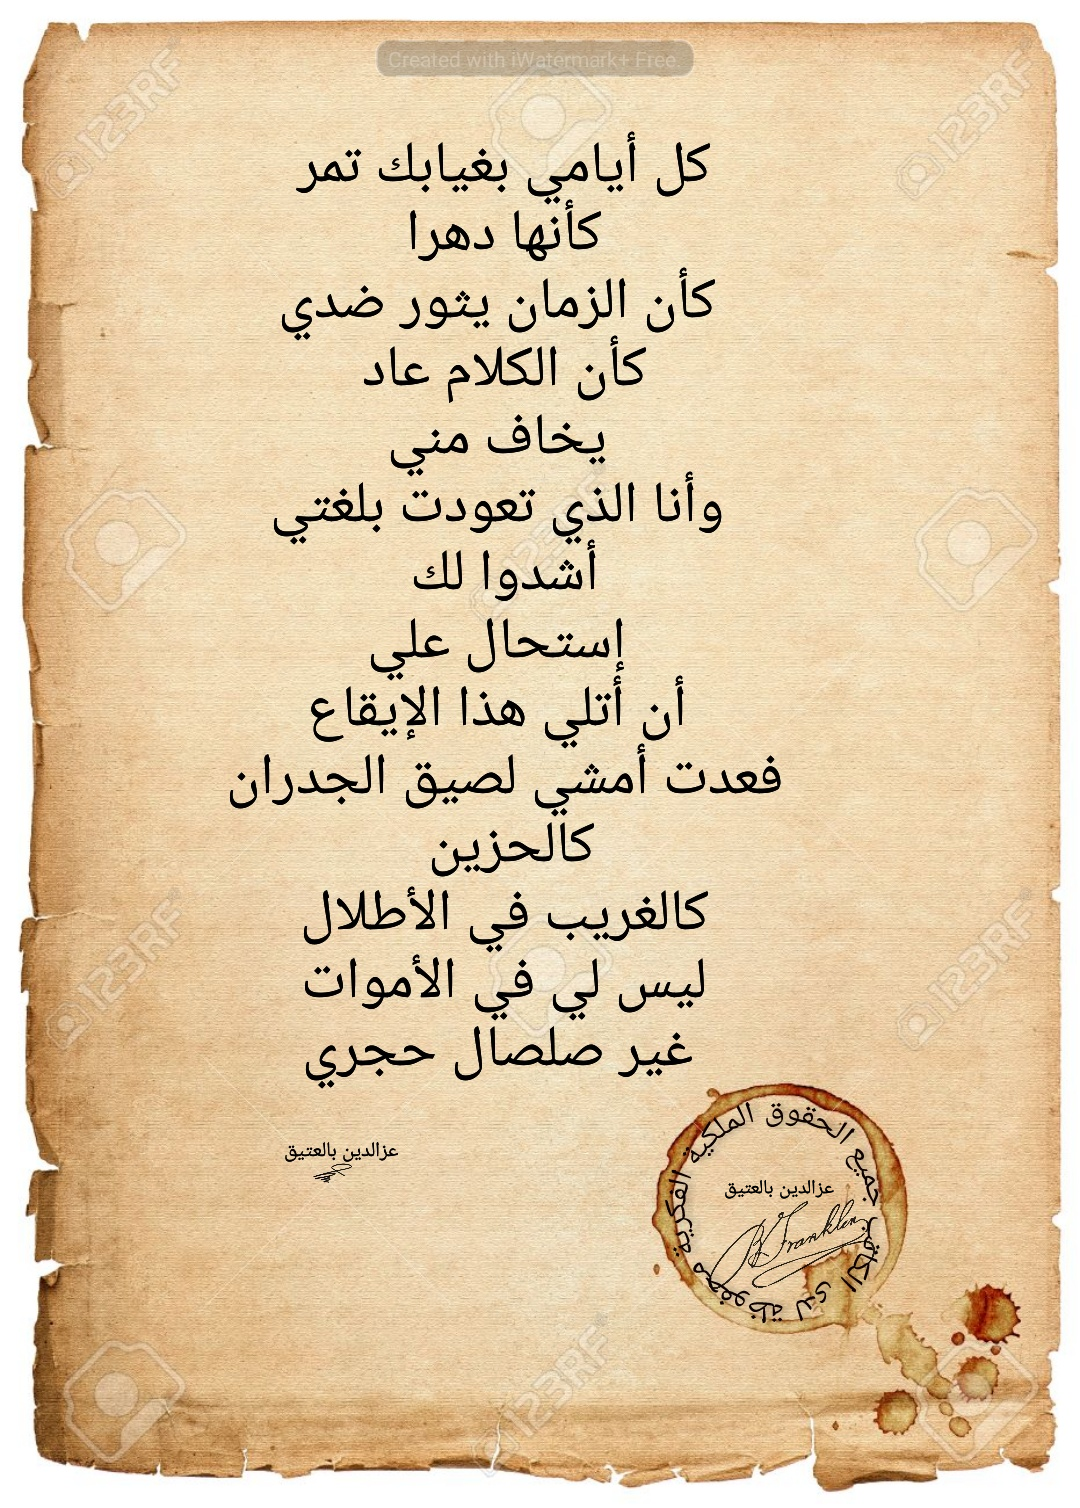 Created with iWatermark+ Free.
كل أيامي بغيابك تمر
كأنها دهرا
كأن الزمان يثور ضدي
كأن الكلام عاد
يخاف مني
وأنا الذي تعودت بلغتي
أشدوا لك
إستحال علي
أن أتلي هذا الإيقاع
فعدت أمشي لصيق الجدران
كالحزين
كالغريب في الأطلال
ليس لي في الأموات
غير صلصال حجري
عزالدين بالعتيق
جميع الحقوق الملكية الفكرية محفوظة لدى الكاتب
عزالدين بالعتيق
B Franklin
123RF
123RF
123RF
123RF
123RF
123RF
123RF